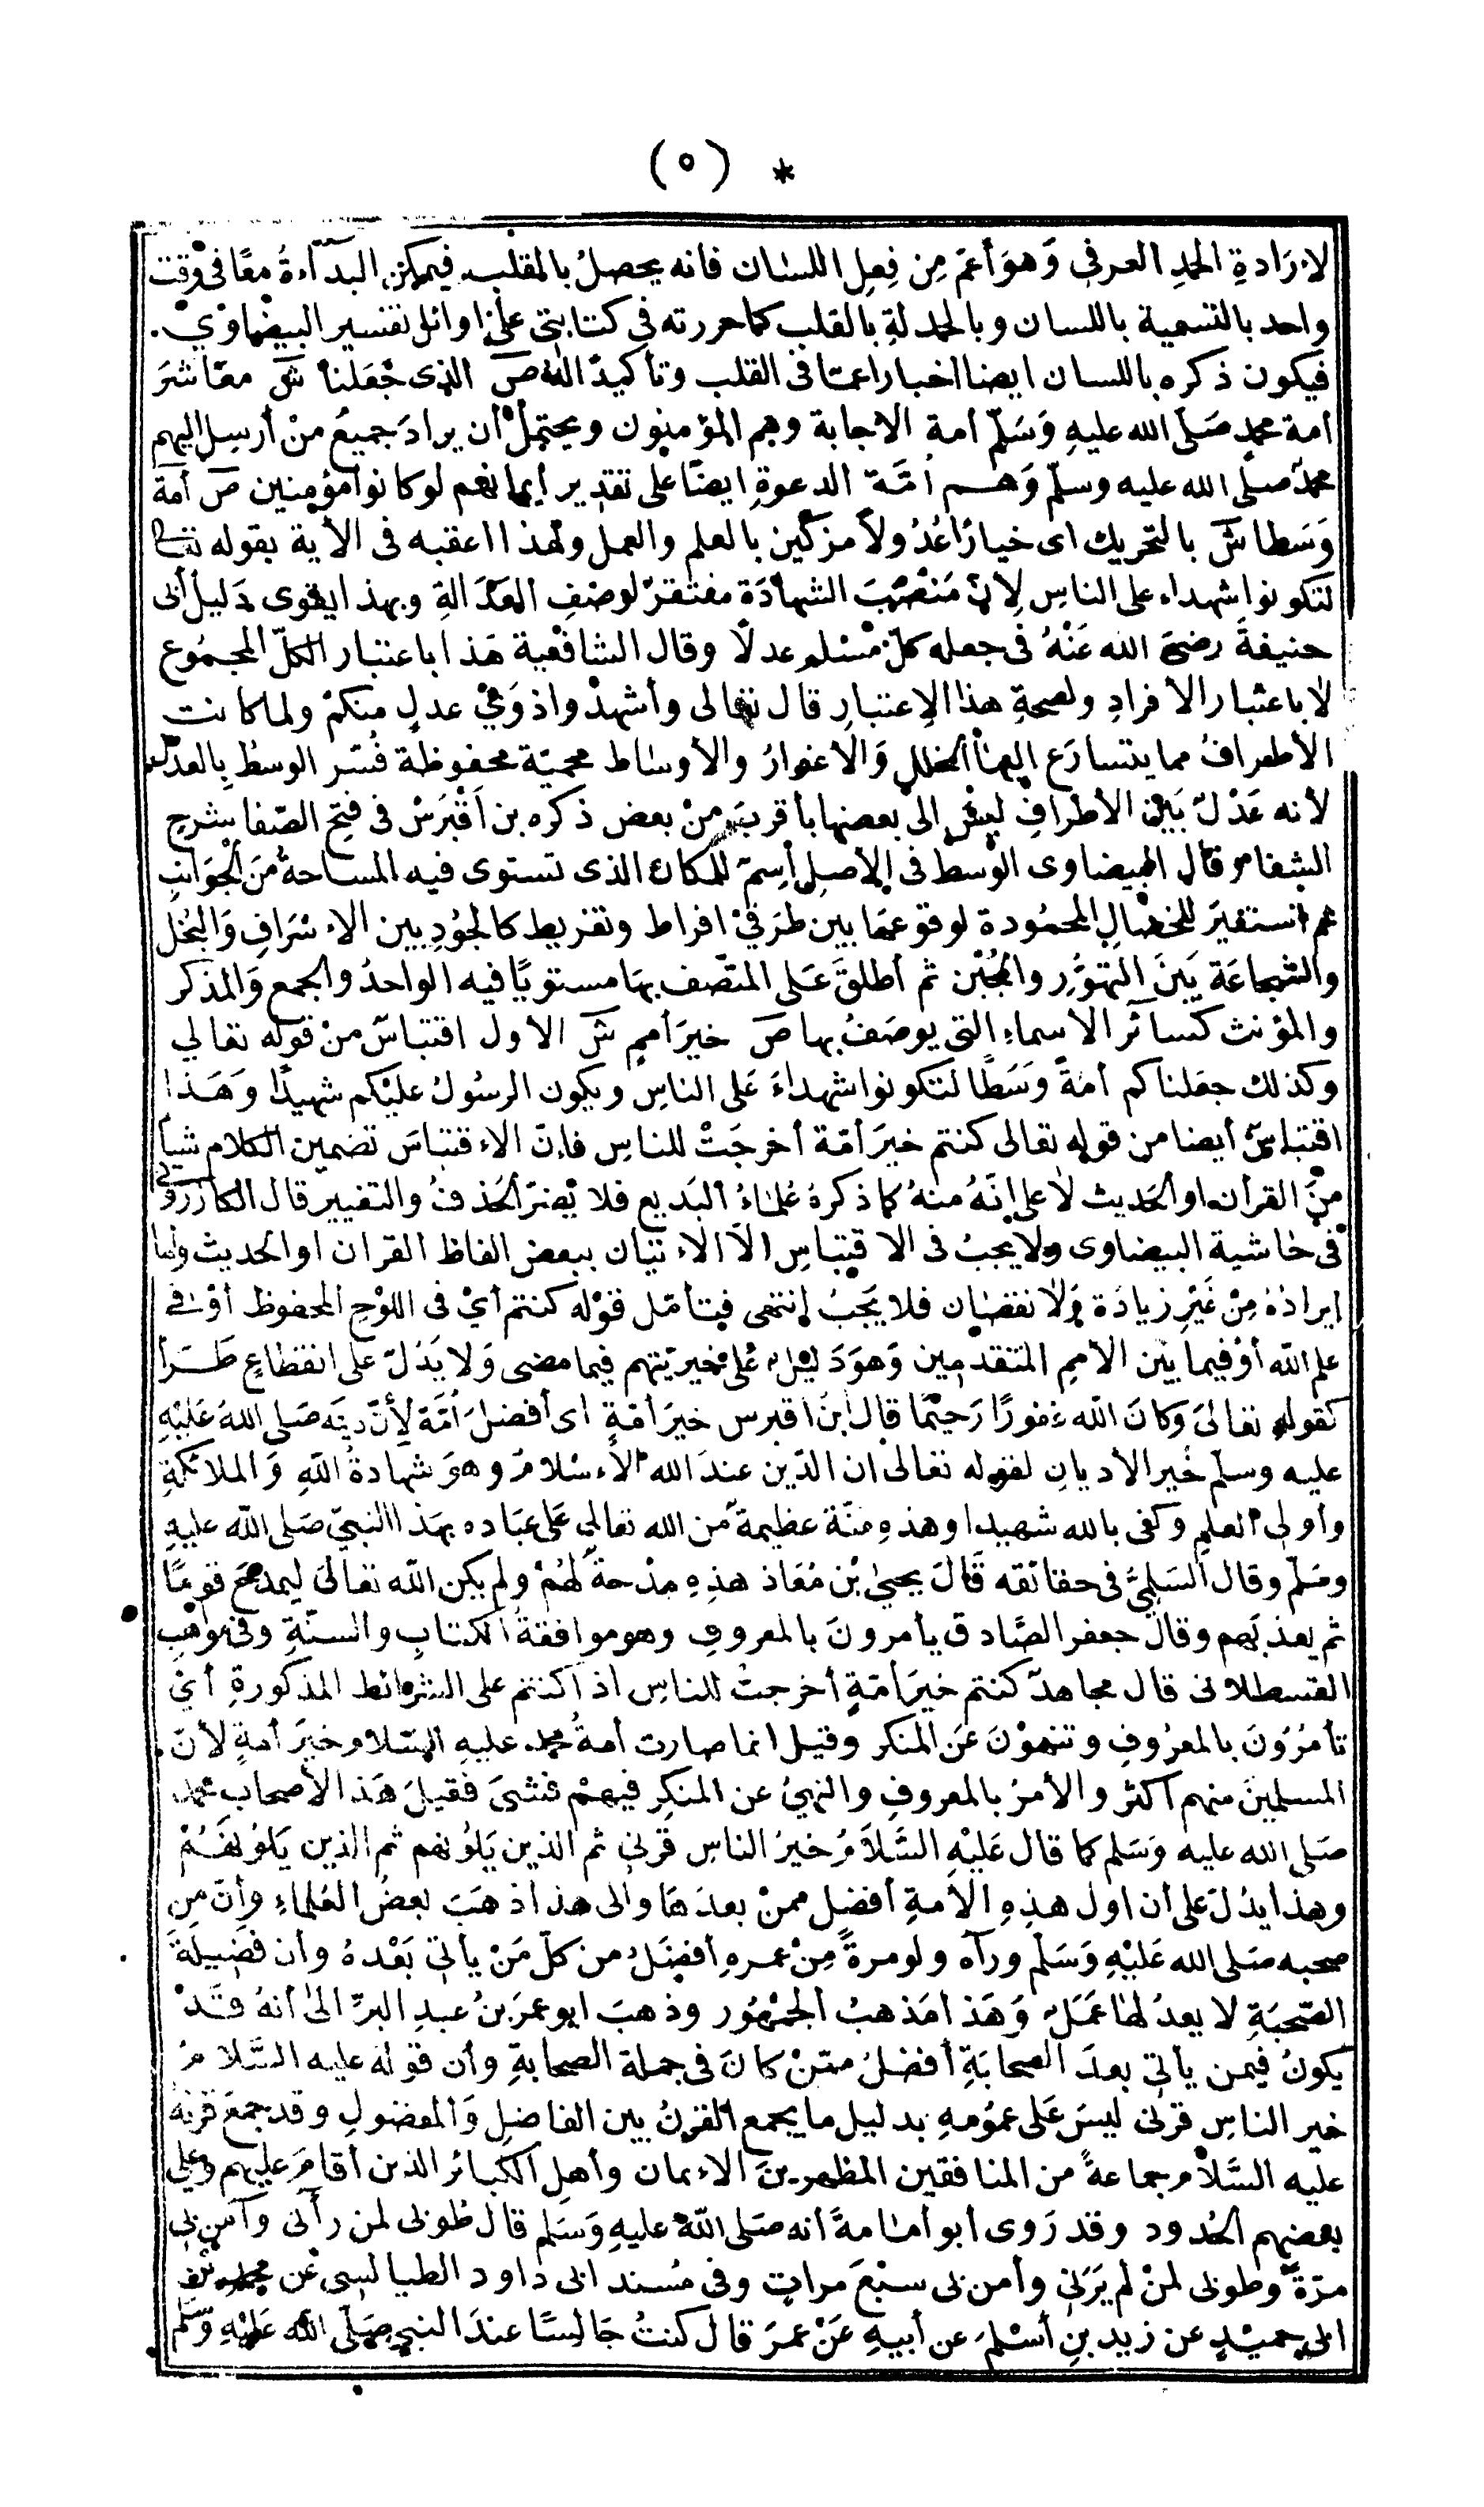 * (٥)
لاِرَادةِ الحمدِ العرفي وَهوَ أعَم مِن فِعلِ اللسَان فانه يحصلُ بالقلب فيمكن البدَآءةُ معًا في وقت
واحد بالتسمية باللسان وبالحمدلةِ بالقلب كما حررته في كتابتى على اوائل تفسير البيضاوي.
فيكون ذكره باللسان ايضا اخبارا عما فى القلب وتأكيدًا له ص الذى جَعَلنا ش معَاشرَ
امة محمدٍ صَلى الله عليهِ وَسَلّم أمة الاجابة وهم المؤمنون ويحتملُ أن يرادَ جميعُ منْ أرسِل اليهم
محمدٌ صلّى الله عليه وسلّم وَهم امّة الدعوةِ ايضًا على تقدير إيمانهم لو كانوا مؤمنين ص أمة
وَسَطا ش بالتحريك اى خيارًا عُدُولاً مزكّين بالعلم والعمل ولهذا اعقبه فى الأية بقوله تعالى
لتكونوا شهداء على الناسِ لِانّ مَنْصَبَ الشهادَة مفتقرٌ لوصْفِ العَدَالةِ وبهذا يقوى دَليلُ أبى
حنيفةَ رضىَ الله عَنْهُ فى جعله كلّ مسْلمٍ عدلًا وقال الشافعية هَذا باعتبار الكلّ المجمُوع
لا باعتبار الأفرادِ ولصحةِ هذا الإعتبارِ قال تعالى وأشهدْوا ذَوَيْ عدلٍ منكمْ ولما كانت
الأطرافُ مما يتسارَع إليهَا الخللُ وَالأغوارُ والأوسَاط محميّة محفوظة فُسّر الوسطُ بِالعدل
لأنه عَدْلٌ بَيْنَ الأطرافِ ليسَ الى بعضها بأقربَ منْ بعض ذكره بن اَقْبَرَسْ فى فتحِ الصّفا بشرحِ
الشفا وقال البيضاوى الوسط فى الأصلِ أسمٌ للمكان الذى تستوى فيه المساحةُ منَ الجَوَانبِ
ثم استعيرَ للخصَالِ المحمُودة لوقوعهَا بين طرَفيْ افراط وتفريط كالجُودِ بين الاِسْرَافِ وَالبُخل
والشجاعَة بَينَ التهوُّر والجُبْنِ ثم أطلقَ عَلى المتّصف بهَا مستويًا فيه الواحدُ والجمع وَالمذكر
والمؤنث كسائر الأسماءِ التي يوصَفُ بها ص خيرَ أممٍ ش الاول اقتباسٌ منْ قوله تعالي
وكذلك جعَلناكم أمةً وَسَطًا لتكونوا شهداءَ عَلى الناسِ ويكون الرسُولُ عليْكم شهيدًا وَهَذا
اقتباسٌ أيضا من قوله تعالى كنتم خيرَ أمّة أخرجَتْ للناسِ فاِنّ الاِقتباسَ تضمين الكلام شيأ
منَ القرأن او الحَديث لا على إنّهُ منهُ كما ذكرهُ عُلماءُ البَديع فلا يضرّ الحَذفُ والتغيير قال الكازرونى
فى حَاشية البيضاوى ولا يجبُ فى الاقتباسِ الّا الاِتيَان ببعض الفاظ القران او الحديث واما
ايرادُهُ مِنْ غَيْرِ زيادَة وَلا نقصَان فلا يَجَبُ إنتهى فتأمّل قوْله كنتم أيْ فى اللوْحِ المحفوظ أوْ فى
علم اللّه أوْ فيما بيْن الأممِ المتقدمين وَهوَ دَليل عَلى خيريّتهم فيما مضى وَلا يَدُلّ على انقطاعٍ طَرَأ
كقوله تعالىَ وَكانَ اللّه غفورًا رَحيْمًا قال ابنُ اقبرس خيرَ أمّةٍ اى أفضلَ أمّةً لِأنّ دينَه صَلى اللهَ عَليْهِ
عليه وسلّم خُير الأديانِ لقوله تعالىْ ان الدّين عندَ الله الاِسْلامُ وهوَ شهادةُ اللّهِ وَالملائكةِ
وأولى العلمِ وكفى بالله شهيدا وهذهِ منّة عظيمةٌ من الله تعالي عَلى عبَاده بهَذا النبيّ صَلى اللّه عليهِ
وسَلّم وقال السّلميّ فى حقائقه قَالَ يحيىْ بْن مُعَاذ هذهِ مِدْحةٌ لهُمْ ولم يكن اللّه تعَالىَ ليمدحَ قومًا
ثم يعذبَهم وقالَ جعفر الصَّادق يأمرونَ بالمعروفِ وهو موافقةُ الكتابِ والسنّةِ وفى مواهبِ
القسطلانى قال مجاهدٌ كنتم خيرَ أمّةٍ أخرجتْ للناسِ اذا كنتم على الشرائط المذكورةِ أيْ
تأمرُوَنَ بالمعرُوفِ وتنهوْنَ عَن المنكر وقيل انما صارت أمةُ محمد عليهِ السّلام خيَر أمةٍ لأنّ
المسلمِينَ منهم أكثر والأمرُ بالمعروفِ والنهىُ عن المنكرِ فيهمْ فَشىَ فقيلَ هَذا لأصحابِ محمد
صَلى الله عليه وَسَلم كما قال عَليْهِ السَّلاَمُ خيرُ الناسِ قَرنى ثم الذين يَلُونهم ثم الذين يَلوُنهَمُ
وهذا يدُلّ على أن اول هذِهِ الأمةِ أفضلُ ممنْ بعدَهَا والى هذا ذهَبَ بعضُ العُلماءِ وأنّ من
صحبه صَلى الله عَليْهِ وَسَلّم ورآه ولو مرةً مِنْ عمرهِ أفضَلُ من كلّ مَنْ يأتى بَعْدهُ وأن فضَيلةَ
الصّحبَةِ لا يعدُ لهَا عَمَلٌ وَهَذا مَذهبُ الجمْهُور وذهبَ ابو عمرَ بنُ عبدِ البرّ الىْ أنهُ قَدْ
يكونُ فيمن يأتى بعدَ الصحَابَةِ أفضلُ ممّنْ كانَ فى جملة الصحابةِ وأن قولَه عليه السَّلامُ
خير الناسِ قَرنى ليسَ عَلى عمُومهِ بدليل ما يجمع القرنُ بين الفاضلِ وَالمفضولِ وقد جمعَ قرنُه
عليه السَّلامُ جماعةً من المنافقين المظهرينَ الاِيمان وأهلِ الكبائر الذين أقامَ عليهم وعلى
بعضهم الحُدود وقد رَوى أبو أمَامةً أنه صَلى اللّهُ عليهِ وَسَلم قال طُوبى لمن رأنى وآمن بى
مرّةً وطوبى لمنْ لم يَرَنى وأمن بى سبْعَ مراتٍ وفى مُسند ابى داود الطيالسى عَن محمد بن
ابى حميْدٍ عن زيد بنِ أسْلمَ عن أبيهِ عَنْ عمرَ قال كنتُ جَالسًا عندَ النبيِ صَلّى اللّه عَليْهِ وَسَلّم